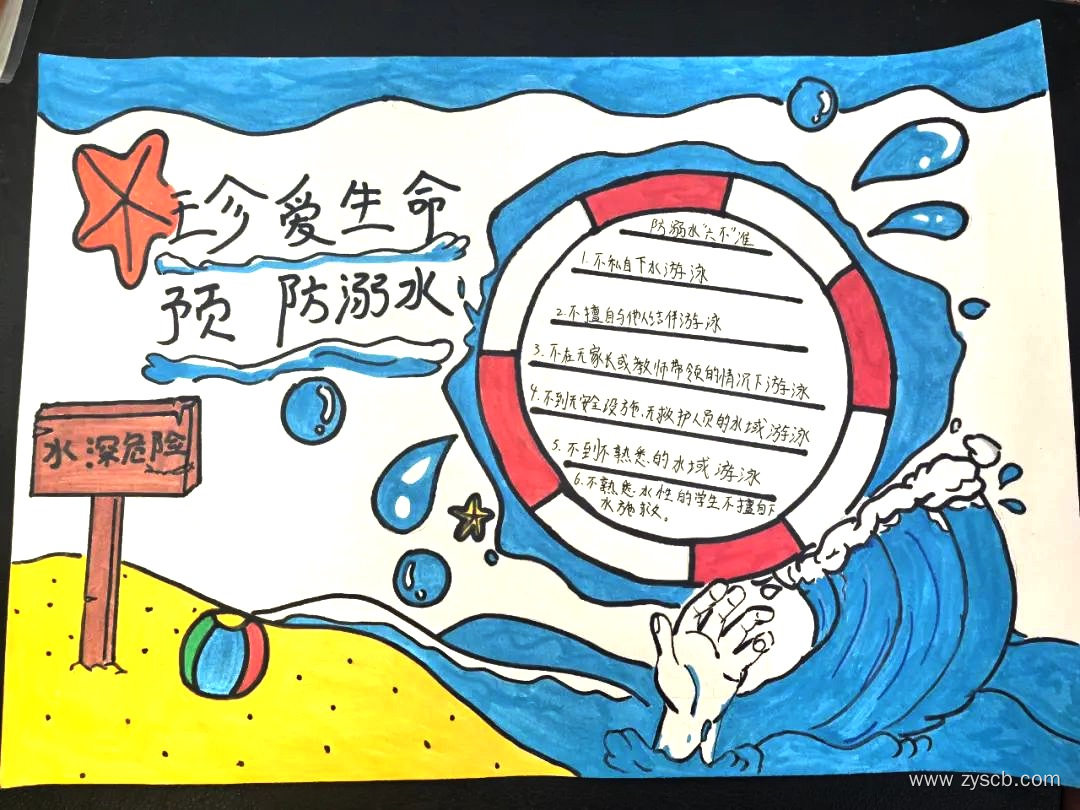 珍爱生命
预防溺水
水深危险
防溺水"六不"准
1.不私自下水游泳
2.不擅自与他人结伴游泳
3.不在无家长或教师带领的情况下游泳
4.不到无安全设施、无救护人员的水域游泳
5.不到不熟悉的水域游泳
6.不熟悉水性的学生不擅自下
水施救。
www.zyscb.com